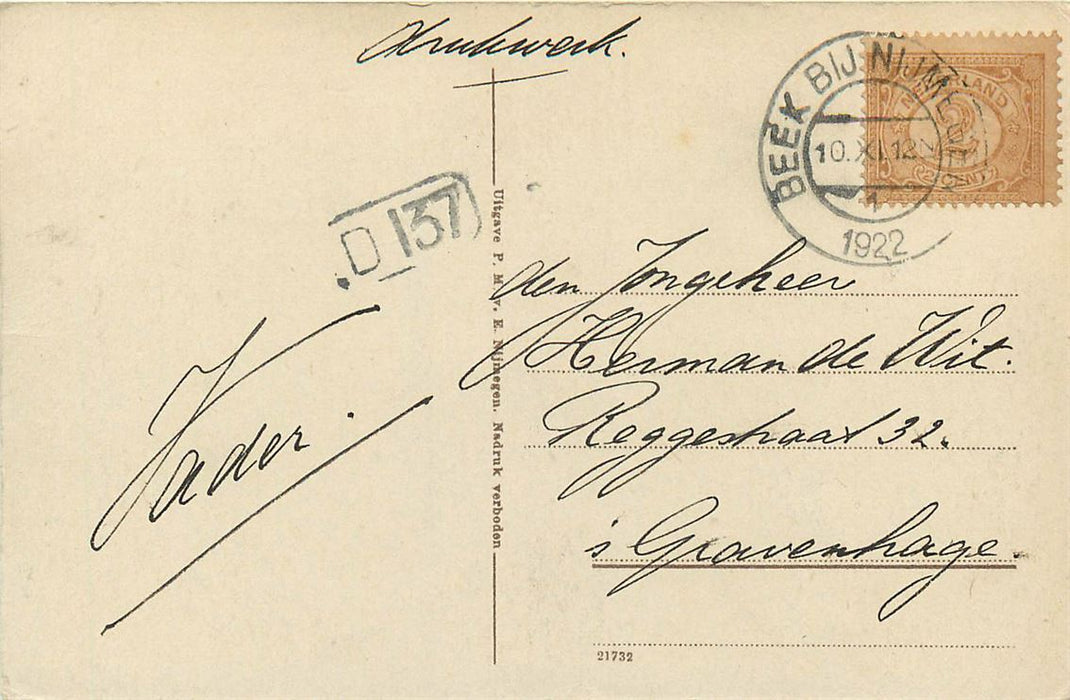 drukwerk.
BEEK BIJ NIJMEGEN
10.XI.12
1
1922
NEDERLAND
CENT
D 137
Uitgave P. M. v. E. Nijmegen. Nadruk verboden
den Jongeheer
Herman de Wit.
Reggestraat 32.
's Gravenhage.
Vader.
21732